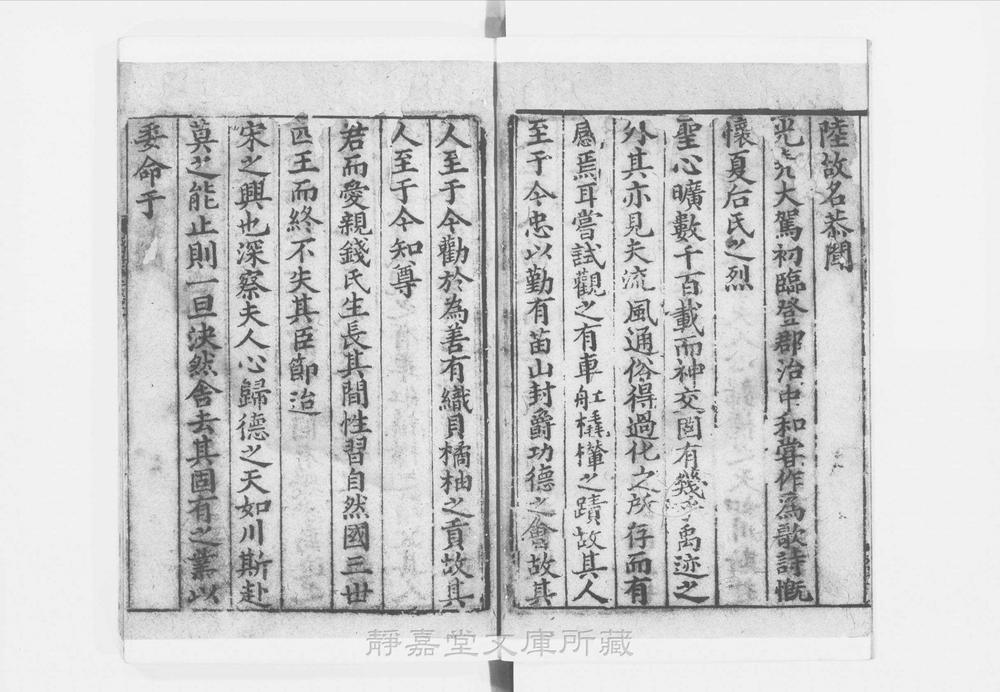 陸故名恭聞
光堯大駕初臨登郡治中和嘗作爲歌詩慨
懷夏后氏之烈
聖心曠數千百載而神交固有幾乎禹迹之
外其亦見夫流風通俗得過化之所存而有
感焉耳嘗試觀之有車舡橇檋之蹟故其人
至于今忠以勤有苗山封爵功德之會故其
人至于今勸於為善有織貝橘柚之貢故其
人至于今知尊
君而愛親錢氏生長其間性習自然國三世
四王而終不失其臣節迨
宋之興也深察夫人心歸德之天如川斯赴
莫之能止則一旦決然舍去其固有之業以
委命于
靜嘉堂文庫所藏